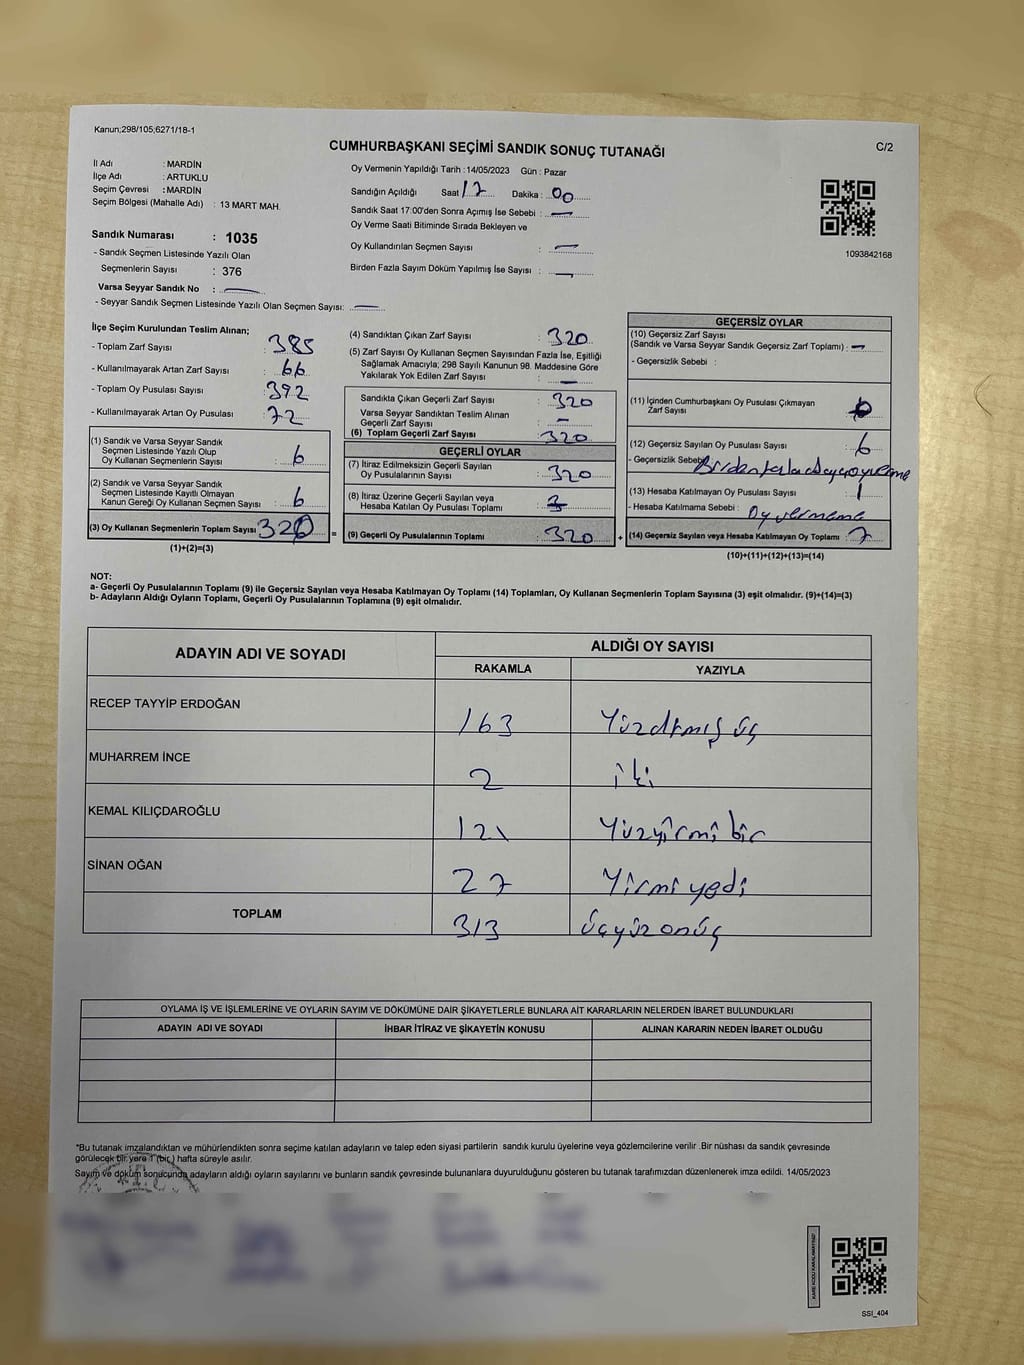 Kanun;298/105;6271/18-1
CUMHURBAŞKANI SEÇİMİ SANDIK SONUÇ TUTANAĞI
C/2
İl Adı : MARDİN
İlçe Adı : ARTUKLU
Seçim Çevresi : MARDİN
Seçim Bölgesi (Mahalle Adı) : 13 MART MAH.
Sandık Numarası : 1035
- Sandık Seçmen Listesinde Yazılı Olan
Seçmenlerin Sayısı : 376
Varsa Seyyar Sandık No :
- Seyyar Sandık Seçmen Listesinde Yazılı Olan Seçmen Sayısı:
Oy Vermenin Yapıldığı Tarih : 14/05/2023 Gün : Pazar
Sandığın Açıldığı Saat 17 Dakika : 00
Sandık Saat 17:00'den Sonra Açımış İse Sebebi : —
Oy Verme Saati Bitiminde Sırada Bekleyen ve
Oy Kullandırılan Seçmen Sayısı : —
Birden Fazla Sayım Döküm Yapılmış İse Sayısı : —
1093842168
İlçe Seçim Kurulundan Teslim Alınan;
- Toplam Zarf Sayısı : 385
- Kullanılmayarak Artan Zarf Sayısı : 66
- Toplam Oy Pusulası Sayısı : 392
- Kullanılmayarak Artan Oy Pusulası : 72
(1) Sandık ve Varsa Seyyar Sandık
Seçmen Listesinde Yazılı Olup
Oy Kullanan Seçmenlerin Sayısı : 6
(2) Sandık ve Varsa Seyyar Sandık
Seçmen Listesinde Kayıtlı Olmayan
Kanun Gereği Oy Kullanan Seçmen Sayısı : 6
(3) Oy Kullanan Seçmenlerin Toplam Sayısı 320
(1)+(2)=(3)
(4) Sandıktan Çıkan Zarf Sayısı : 320
(5) Zarf Sayısı Oy Kullanan Seçmen Sayısından Fazla İse, Eşitliği
Sağlamak Amacıyla; 298 Sayılı Kanunun 98. Maddesine Göre
Yakılarak Yok Edilen Zarf Sayısı : —
Sandıkta Çıkan Geçerli Zarf Sayısı : 320
Varsa Seyyar Sandıktan Teslim Alınan
Geçerli Zarf Sayısı : —
(6) Toplam Geçerli Zarf Sayısı : 320
GEÇERLİ OYLAR
(7) İtiraz Edilmeksizin Geçerli Sayılan
Oy Pusulalarının Sayısı : 320
(8) İtiraz Üzerine Geçerli Sayılan veya
Hesaba Katılan Oy Pusulası Toplamı :
(9) Geçerli Oy Pusulalarının Toplamı : 320
GEÇERSİZ OYLAR
(10) Geçersiz Zarf Sayısı
(Sandık ve Varsa Seyyar Sandık Geçersiz Zarf Toplamı) : —
- Geçersizlik Sebebi :
(11) İçinden Cumhurbaşkanı Oy Pusulası Çıkmayan
Zarf Sayısı :
(12) Geçersiz Sayılan Oy Pusulası Sayısı : 6
- Geçersizlik Sebebi
(13) Hesaba Katılmayan Oy Pusulası Sayısı : 1
- Hesaba Katılmama Sebebi : Oy vermeme
(14) Geçersiz Sayılan veya Hesaba Katılmayan Oy Toplamı : 7
(10)+(11)+(12)+(13)=(14)
NOT:
a- Geçerli Oy Pusulalarının Toplamı (9) ile Geçersiz Sayılan veya Hesaba Katılmayan Oy Toplamı (14) Toplamları, Oy Kullanan Seçmenlerin Toplam Sayısına (3) eşit olmalıdır. (9)+(14)=(3)
b- Adayların Aldığı Oyların Toplamı, Geçerli Oy Pusulalarının Toplamına (9) eşit olmalıdır.
ADAYIN ADI VE SOYADI
ALDIĞI OY SAYISI
RAKAMLA YAZIYLA
RECEP TAYYİP ERDOĞAN 163 Yüzatmış üç
MUHARREM İNCE 2 iki
KEMAL KILIÇDAROĞLU 121 Yüzyirmi bir
SİNAN OĞAN 27 Yirmi yedi
TOPLAM 313 üçyüzonüç
OYLAMA İŞ VE İŞLEMLERİNE VE OYLARIN SAYIM VE DÖKÜMÜNE DAİR ŞİKAYETLERLE BUNLARA AİT KARARLARIN NELERDEN İBARET BULUNDUKLARI
ADAYIN ADI VE SOYADI İHBAR İTİRAZ VE ŞİKAYETİN KONUSU ALINAN KARARIN NEDEN İBARET OLDUĞU
*Bu tutanak imzalandıktan ve mühürlendikten sonra seçime katılan adayların ve talep eden siyasi partilerin sandık kurulu üyelerine veya gözlemcilerine verilir .Bir nüshası da sandık çevresinde
görülecek bir yere 1 (bir ) hafta süreyle asılır.
Sayım ve döküm sonucunda adayların aldığı oyların sayılarını ve bunların sandık çevresinde bulunanlara duyurulduğunu gösteren bu tutanak tarafımızdan düzenlenerek imza edildi. 14/05/2023
SSI_404